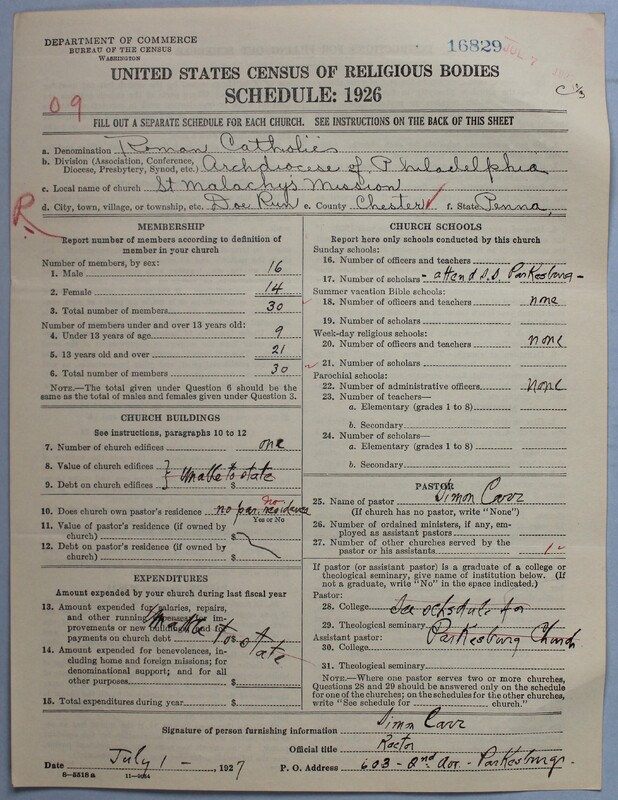 DEPARTMENT OF COMMERCE
BUREAU OF THE CENSUS
WASHINGTON
16829
JUL 7
UNITED STATES CENSUS OF RELIGIOUS BODIES
SCHEDULE: 1926
09
FILL OUT A SEPARATE SCHEDULE FOR EACH CHURCH. SEE INSTRUCTIONS ON THE BACK OF THIS SHEET
a. Denomination Roman Catholic
b. Division (Association, Conference, Diocese, Presbytery, Synod, etc.) Archdiocese of Philadelphia
c. Local name of church St Malachy's Mission
d. City, town, village, or township, etc. Doe Run e. County Chester f. State Penna,
R
MEMBERSHIP
Report number of members according to definition of
member in your church
Number of members, by sex:
1. Male 16
2. Female 14
3. Total number of members 30
Number of members under and over 13 years old:
4. Under 13 years of age 9
5. 13 years old and over 21
6. Total number of members 30
NOTE.—The total given under Question 6 should be
the same as the total of males and females given under Question 3.
CHURCH BUILDINGS
See instructions, paragraphs 10 to 12
7. Number of church edifices one
8. Value of church edifices
Unable to state
9. Debt on church edifices $
10. Does church own pastor's residence no par. residence
no
Yes or No
11. Value of pastor's residence (if owned by
church) $
12. Debt on pastor's residence (if owned by
church) $
EXPENDITURES
Amount expended by your church during last fiscal year
13. Amount expended for salaries, repairs,
and other running expenses; for im-
provements or new buildings; and for
payments on church debt
Unable to state
14. Amount expended for benevolences, in-
cluding home and foreign missions; for
denominational support; and for all
other purposes $
15. Total expenditures during year $
CHURCH SCHOOLS
Report here only schools conducted by this church
Sunday schools:
16. Number of officers and teachers
17. Number of scholars - attend S.S. Parkesburg -
Summer vacation Bible schools:
18. Number of officers and teachers none
19. Number of scholars
Week-day religious schools:
20. Number of officers and teachers none
21. Number of scholars
Parochial schools:
22. Number of administrative officers none
23. Number of teachers—
a. Elementary (grades 1 to 8)
b. Secondary
24. Number of scholars—
a. Elementary (grades 1 to 8)
b. Secondary
PASTOR
25. Name of pastor Simon Carr
(If church has no pastor, write "None")
26. Number of ordained ministers, if any, em-
ployed as assistant pastors
27. Number of other churches served by the
pastor or his assistants 1
If pastor (or assistant pastor) is a graduate of a college or
theological seminary, give name of institution below. (If
not a graduate, write "No" in the space indicated.)
Pastor:
28. College See schedule for
29. Theological seminary Parkesburg Church
Assistant pastor:
30. College
31. Theological seminary
NOTE.—Where one pastor serves two or more churches,
Questions 28 and 29 should be answered only on the schedule
for one of the churches; on the schedules for the other churches,
write "See schedule for church."
Signature of person furnishing information Simon Carr
Official title Rector
Date July 1 - , 1927 P. O. Address 603 - 2nd Ave. - Parkesburg -
6-5518a 11-9034